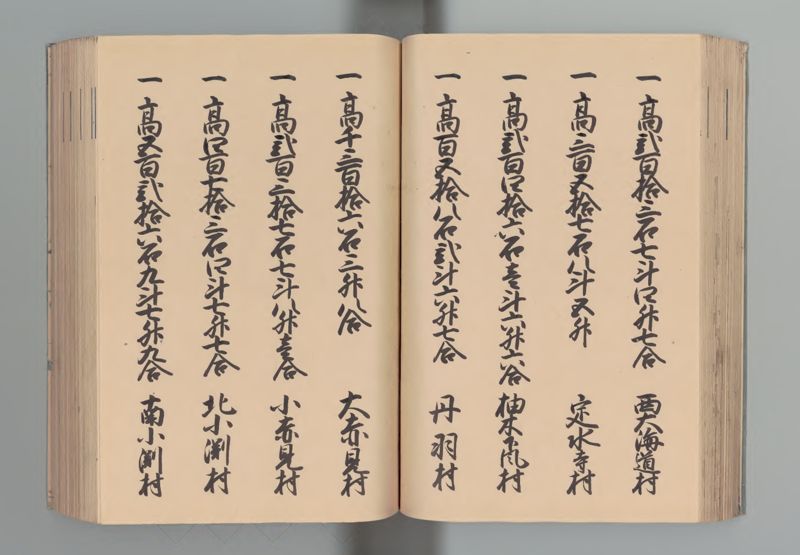 一 高弐百拾三石七斗四升七合 西大海道村
一 高三百五拾七石八斗五升 定水寺村
一 高弐百四拾六石壱斗六升六合 柚木下凡村
一 高百五拾八石弐斗六升七合 丹羽村
一 高千三百拾六石三升八合 大赤見村
一 高弐百三拾七石七斗八升壱合 小赤見村
一 高四百七拾三石四斗七升七合 北小渕村
一 高五百弐拾六石九斗七升九合 南小渕村